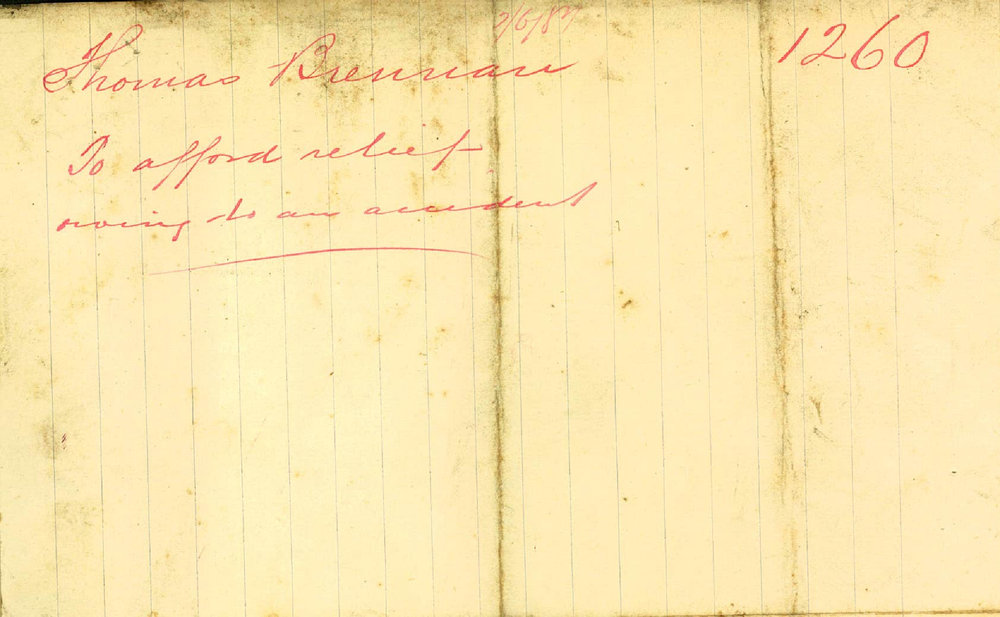 2/6/87
1260
Thomas Brennan
To afford relief
owing to an accident